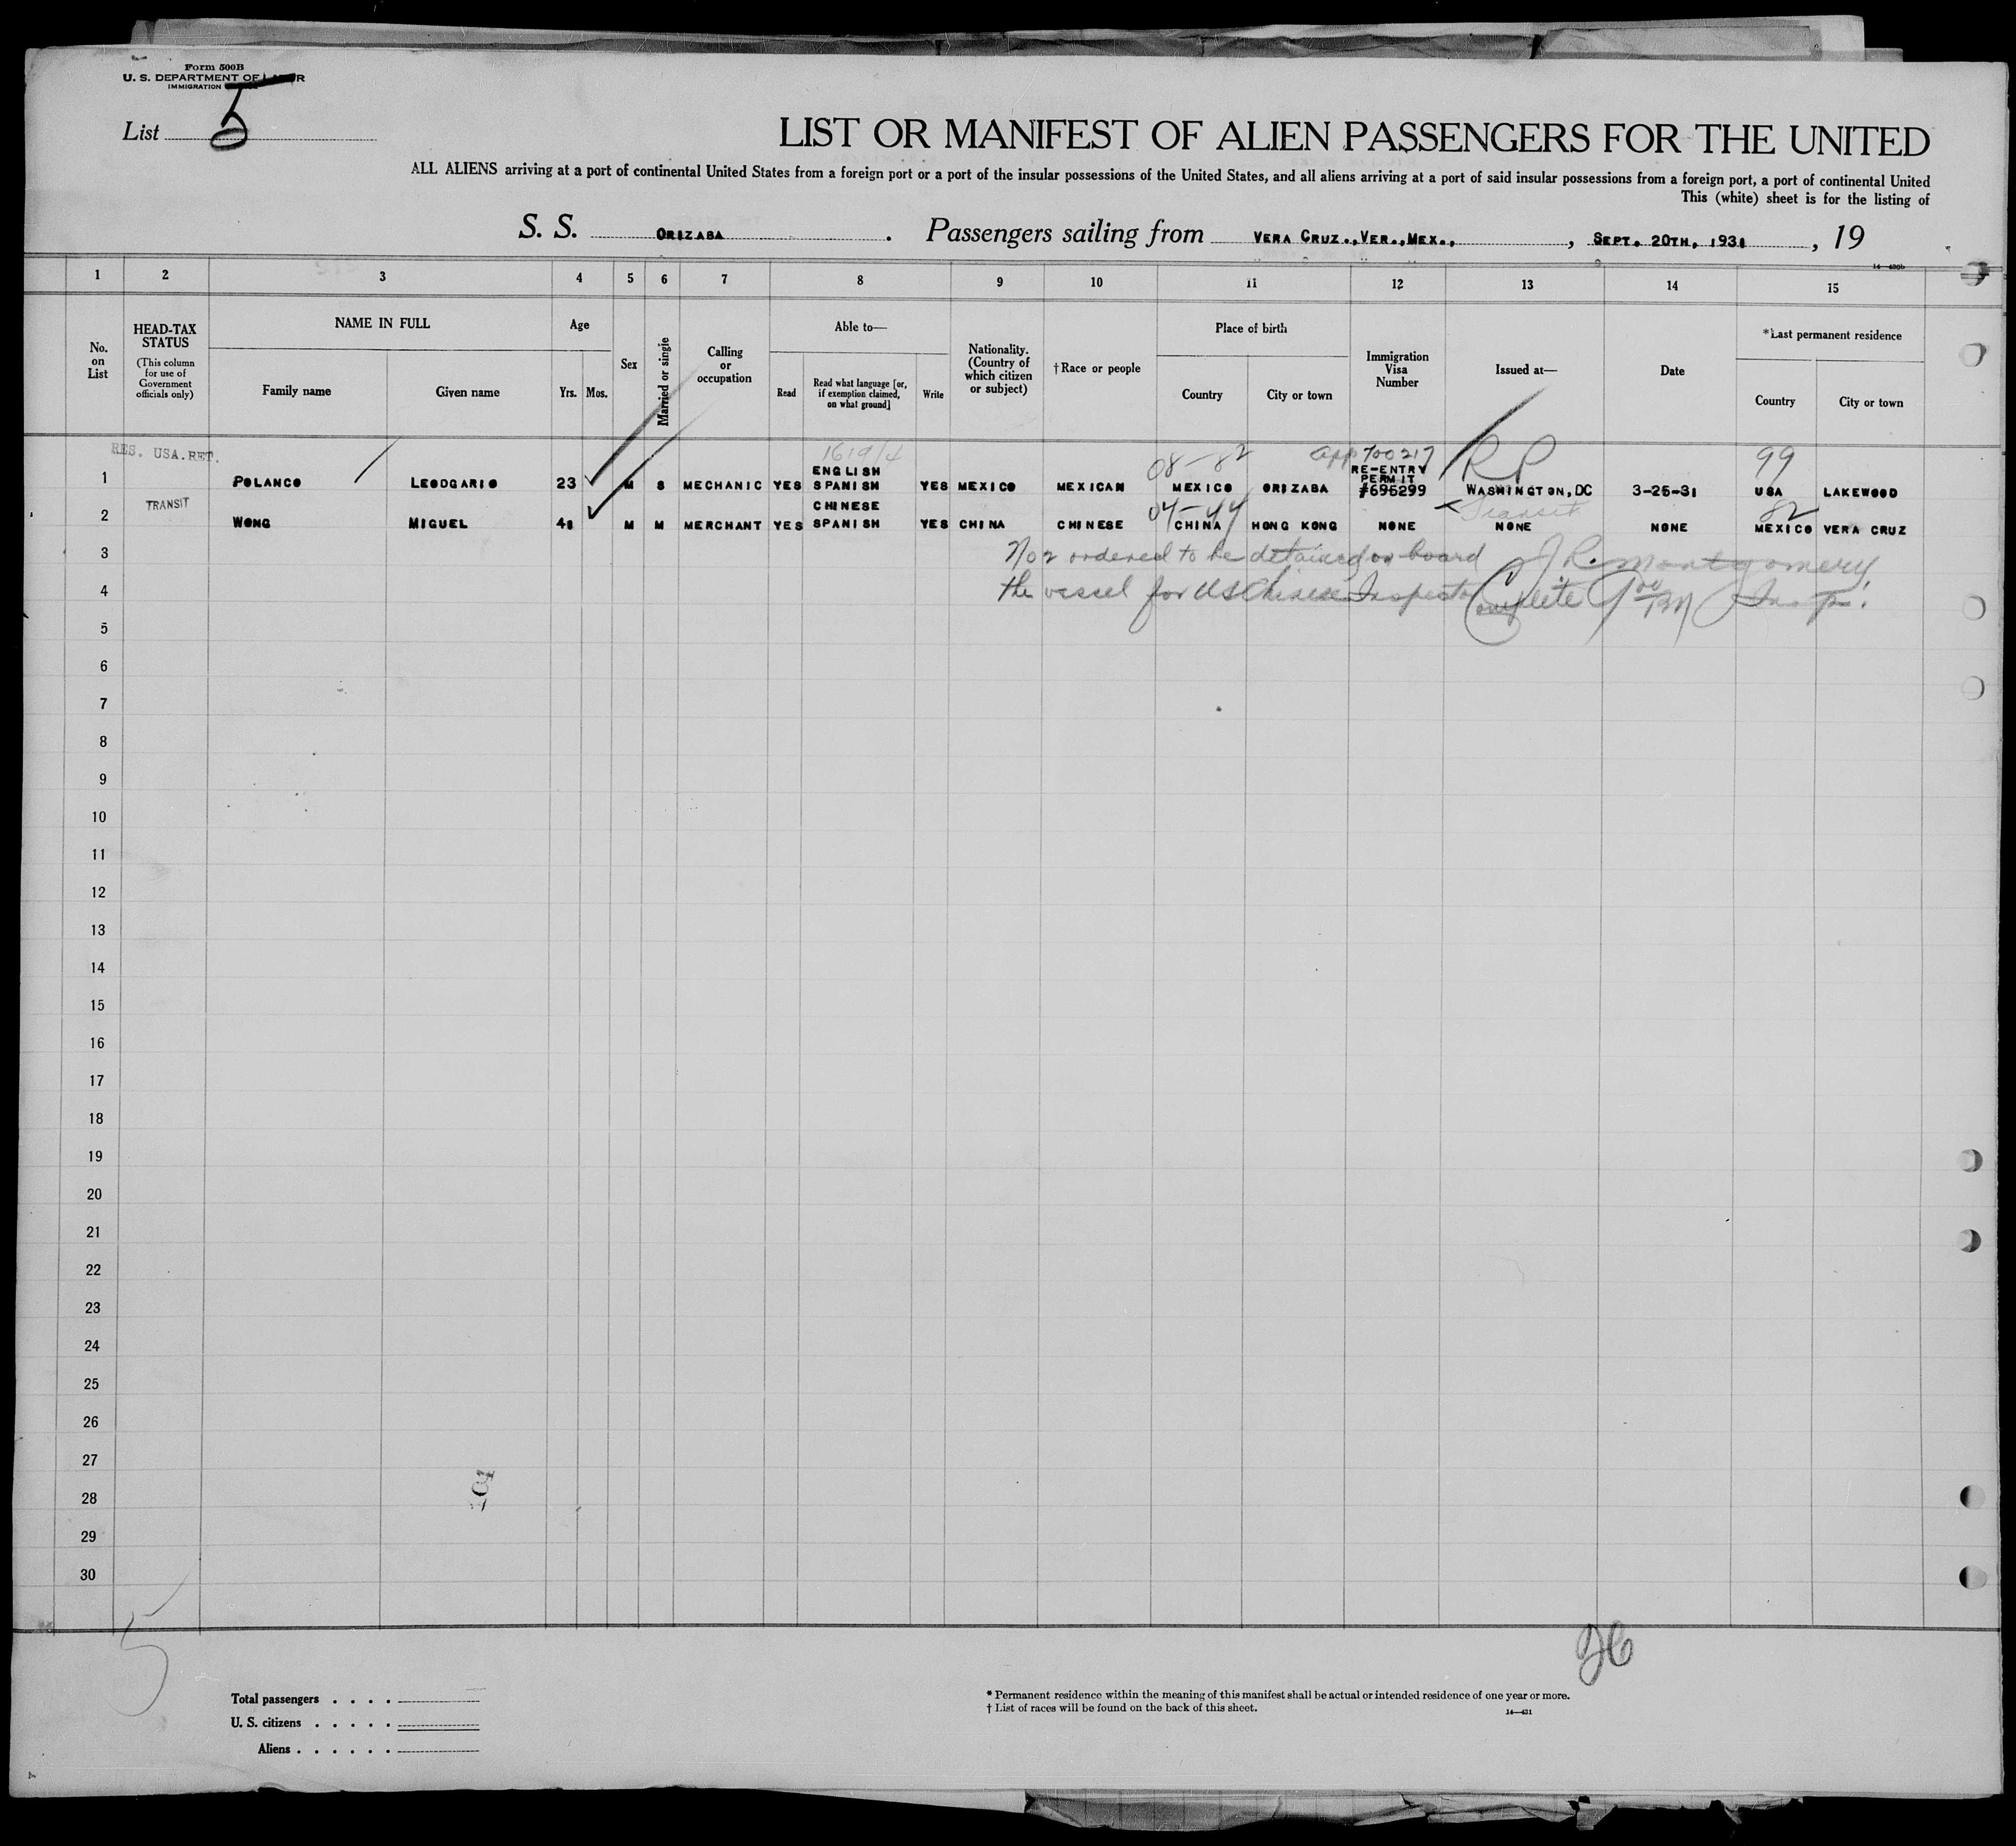 Form 500B
U. S. DEPARTMENT OF LABOR
IMMIGRATION
List 5
LIST OR MANIFEST OF ALIEN PASSENGERS FOR THE UNITED
ALL ALIENS arriving at a port of continental United States from a foreign port or a port of the insular possessions of the United States, and all aliens arriving at a port of said insular possessions from a foreign port, a port of continental United
This (white) sheet is for the listing of
S. S. ORIZABA. Passengers sailing from VERA CRUZ.,VER.,MEX., , SEPT. 20TH, 1931, 19
14—430b
1 2 3 4 5 6 7 8 9 10 11 12 13 14 15
No. on List
HEAD-TAX STATUS
(This column for use of Government officials only)
NAME IN FULL
Family name
Given name
Age
Yrs. Mos.
Sex
Married or single
Calling or occupation
Able to—
Read
Read what language [or, if exemption claimed, on what ground]
Write
Nationality. (Country of which citizen or subject)
†Race or people
Place of birth
Country
City or town
Immigration Visa Number
Issued at—
Date
*Last permanent residence
Country
City or town
RES. USA.RET. 1619/4 08-82 app 700217 RP 99
1 POLANCO LEODGARIO 23 M S MECHANIC YES ENGLISH SPANISH YES MEXICO MEXICAN MEXICO ORIZABA RE-ENTRY PERMIT #695299 WASHINGTON,DC 3-25-31 USA LAKEWOOD
TRANSIT 04-44 Transit 82
2 WONG MIGUEL 41 M M MERCHANT YES CHINESE SPANISH YES CHINA CHINESE CHINA HONG KONG NONE NONE NONE MEXICO VERA CRUZ
3 No 2 ordered to be detained on board J R. Montgomery
4 the vessel for US Chinese Inspector Complete Insp.
5
6
7
8
9
10
11
12
13
14
15
16
17
18
19
20
21
22
23
24
25
26
27
28
29
30
5
Total passengers . . . .
U. S. citizens . . . . .
Aliens . . . . . .
* Permanent residence within the meaning of this manifest shall be actual or intended residence of one year or more.
† List of races will be found on the back of this sheet.
14—431